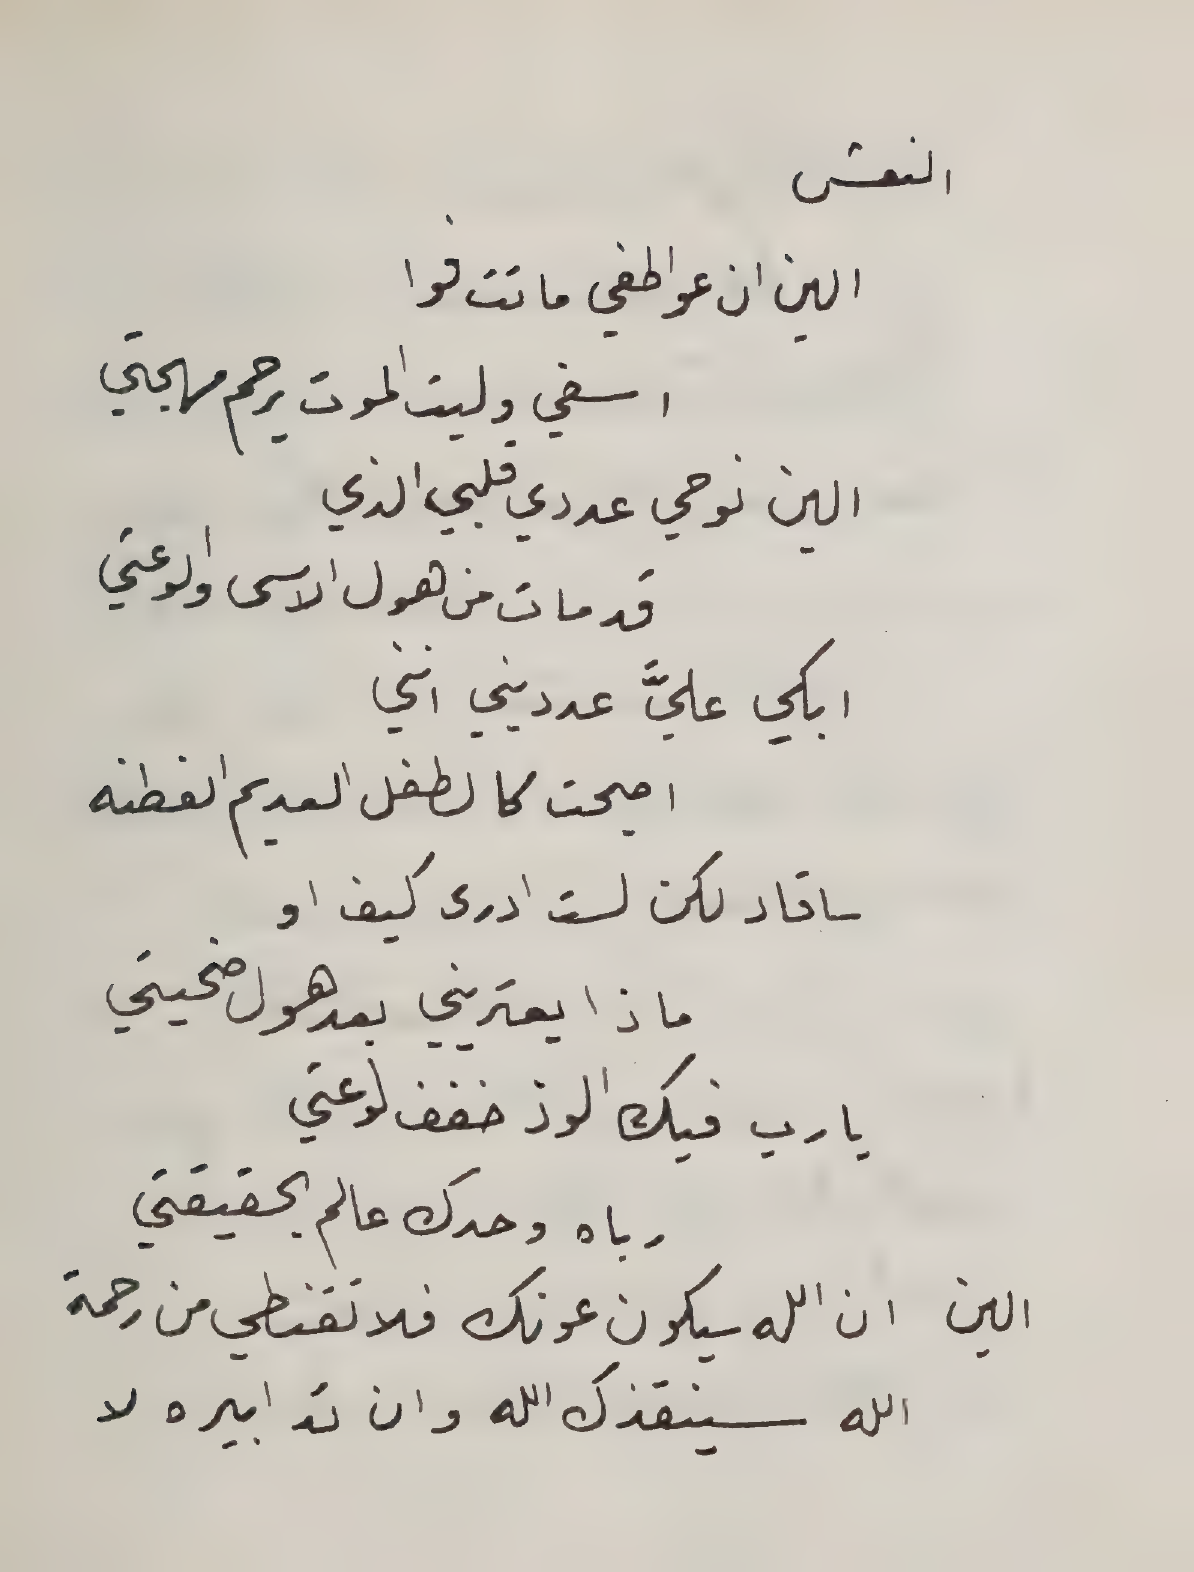 النعش
الين ان عواطفي ماتت فوا
اسفي وليت الموت يرحم مهجتي
الين نوحي عددي قلبي الذي
قد مات من هول الاسى ولوعتي
ابكي عليَّ عدديني انني
اصبحت كالطفل العديم الفطنه
ساقاد لكن لست ادرى كيف او
ماذا يعتريني بعد هول ضحيتي
يارب فيك الوذ خفف لوعتي
رباه وحدك عالم بحقيقتي
الين ان الله سيكون عونك فلا تقنطي من رحمة
الله سينقذك الله وان تدابيره لا